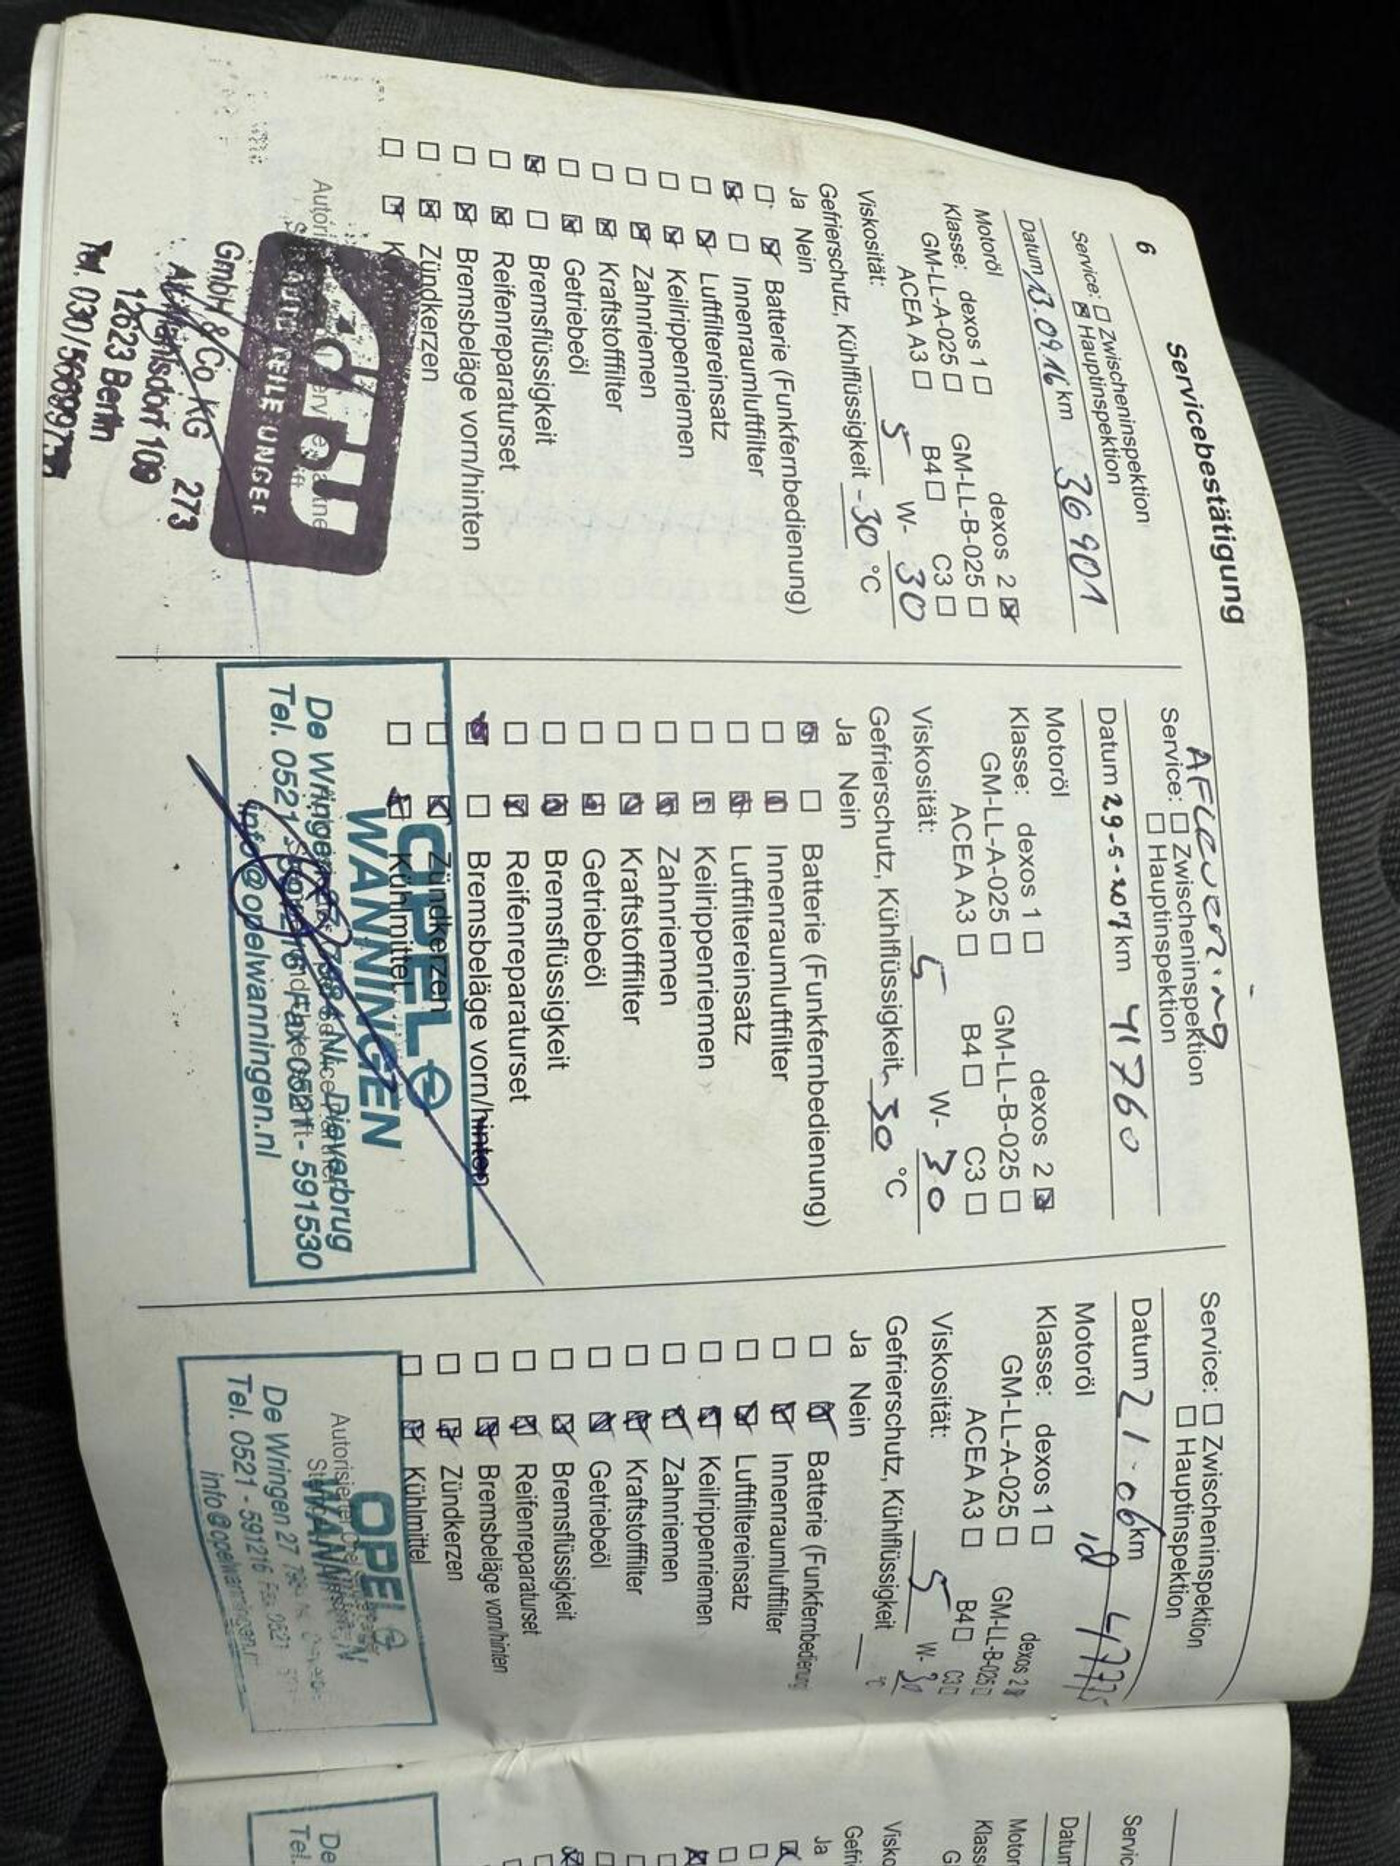 6
Servicebestätigung
Service: ☐ Zwischeninspektion
☒ Hauptinspektion
Datum 13.09.16 km 36 901
Motoröl
Klasse: dexos 1 ☐ dexos 2 ☒
GM-LL-A-025 ☐ GM-LL-B-025 ☐
ACEA A3 ☐ B4 ☐ C3 ☐
Viskosität: 5 W- 30
Gefrierschutz, Kühlflüssigkeit -30 °C
Ja Nein
☐ ☒ Batterie (Funkfernbedienung)
☒ ☐ Innenraumluftfilter
☐ ☒ Luftfiltereinsatz
☐ ☒ Keilrippenriemen
☐ ☒ Zahnriemen
☐ ☒ Kraftstofffilter
☐ ☒ Getriebeöl
☒ ☐ Bremsflüssigkeit
☐ ☒ Reifenreparaturset
☐ ☒ Bremsbeläge vorn/hinten
☐ ☒ Zündkerzen
☐ ☒
GmbH & Co KG 273
12623 Berlin
Aflevering
Service: ☐ Zwischeninspektion
☐ Hauptinspektion
Datum 29-5-2017 km 41760
Motoröl
Klasse: dexos 1 ☐ dexos 2 ☒
GM-LL-A-025 ☐ GM-LL-B-025 ☐
ACEA A3 ☐ B4 ☐ C3 ☐
Viskosität: 5 W- 30
Gefrierschutz, Kühlflüssigkeit -30 °C
Ja Nein
☒ ☐ Batterie (Funkfernbedienung)
☐ ☒ Innenraumluftfilter
☐ ☒ Luftfiltereinsatz
☐ ☒ Keilrippenriemen
☐ ☒ Zahnriemen
☐ ☒ Kraftstofffilter
☐ ☒ Getriebeöl
☐ ☒ Bremsflüssigkeit
☐ ☒ Reifenreparaturset
☒ ☐ Bremsbeläge vorn/hinten
☐ ☒ Zündkerzen
☐ ☒ Kühlmittel
OPEL
WANNINGEN
De Wringen Dieverbrug
Tel. 0521 Fax 0521 - 591530
info@opelwanningen.nl
Service: ☐ Zwischeninspektion
☐ Hauptinspektion
Datum 21-06 km
Motoröl
Klasse: dexos 1 ☐ dexos 2 ☒
GM-LL-A-025 ☐ GM-LL-B-025 ☐
ACEA A3 ☐ B4 ☐ C3 ☐
Viskosität: 5 W- 30
Gefrierschutz, Kühlflüssigkeit °C
Ja Nein
☐ ☒ Batterie (Funkfernbedienung
☐ ☒ Innenraumluftfilter
☐ ☒ Luftfiltereinsatz
☐ ☒ Keilrippenriemen
☐ ☒ Zahnriemen
☐ ☒ Kraftstofffilter
☐ ☒ Getriebeöl
☐ ☒ Bremsflüssigkeit
☐ ☒ Reifenreparaturset
☐ ☒ Bremsbeläge vorn/hinten
☐ ☒ Zündkerzen
☐ ☒ Kühlmittel
OPEL
De Wringen 27
Tel. 0521 - 591216 Fax 0521
Servic
Datum
Motor
Klass
G
Visko
Gefri
Ja
De
Tel.